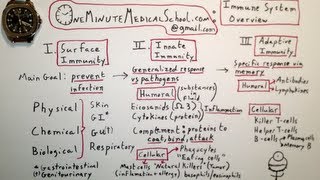 OneMinuteMedicalSchool.com
@gmail.com
Immune System
Overview
I. Surface
Immunity
II Innate
Immunity
III Adaptive
Immunity
Main Goal: prevent
infection
Generalized response
vs pathogens
Specific response via
memory
Humoral (substances/
fluids)
Humoral Antibodies
Lymphokines
Physical
Chemical
Biological
Skin
GI*
GU(†)
Respiratory
Eicosanoids (Ω3)
Cytokines (protein)
Inflammation
Complement → proteins to
coat, bind, attack
Cellular
Phagocytes
"Eating cells"
Mast cells "Natural Killers" (Tumor)
(inflammation + allergy) basophils, eosinophils
Cellular
Killer T-cells
Helper T-cells
B-cells
Plasma cells
memory B
* gastrointestinal
(†) Genitourinary